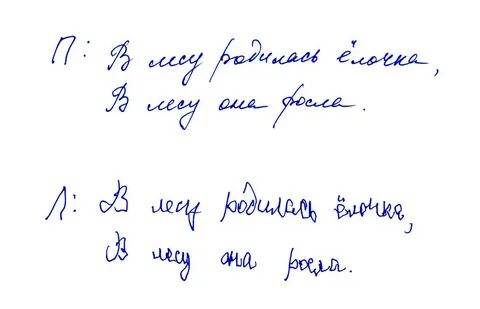 П: В лесу родилась ёлочка,
В лесу она росла.
Л: В лесу родилась ёлочка,
В лесу она росла.